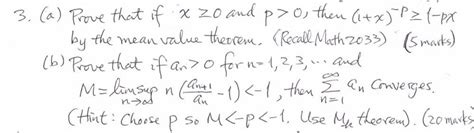 3. (a) Prove that if x ≥ 0 and p > 0, then (1+x)^{-p} ≥ 1-px
by the mean value theorem. (Recall Math2033) (5 marks)
(b) Prove that if a_n > 0 for n = 1, 2, 3, ... and
M = limsup_{n→∞} n (a_{n+1}/a_n - 1) < -1, then ∑_{n=1}^{∞} a_n converges.
(Hint: Choose p so M < -p < -1. Use M_k theorem). (20 marks)